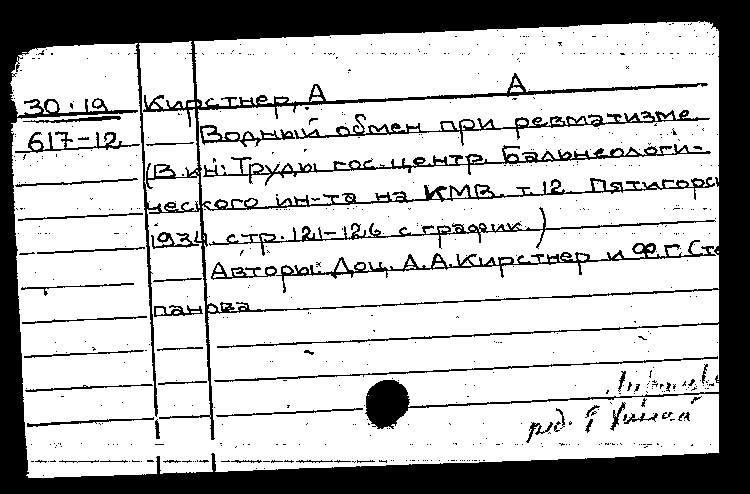 30.19 Кирстнер, А А
617-12 Водный обмен при ревматизме
(В кн: Труды гос. центр. Бальнеологи-
ческого ин-та на КМВ. т. 12. Пятигорс
1934. стр. 121-126 с график.)
Авторы: Доц. А.А. Кирстнер и Ф.Г. Сте
панова.
ред.